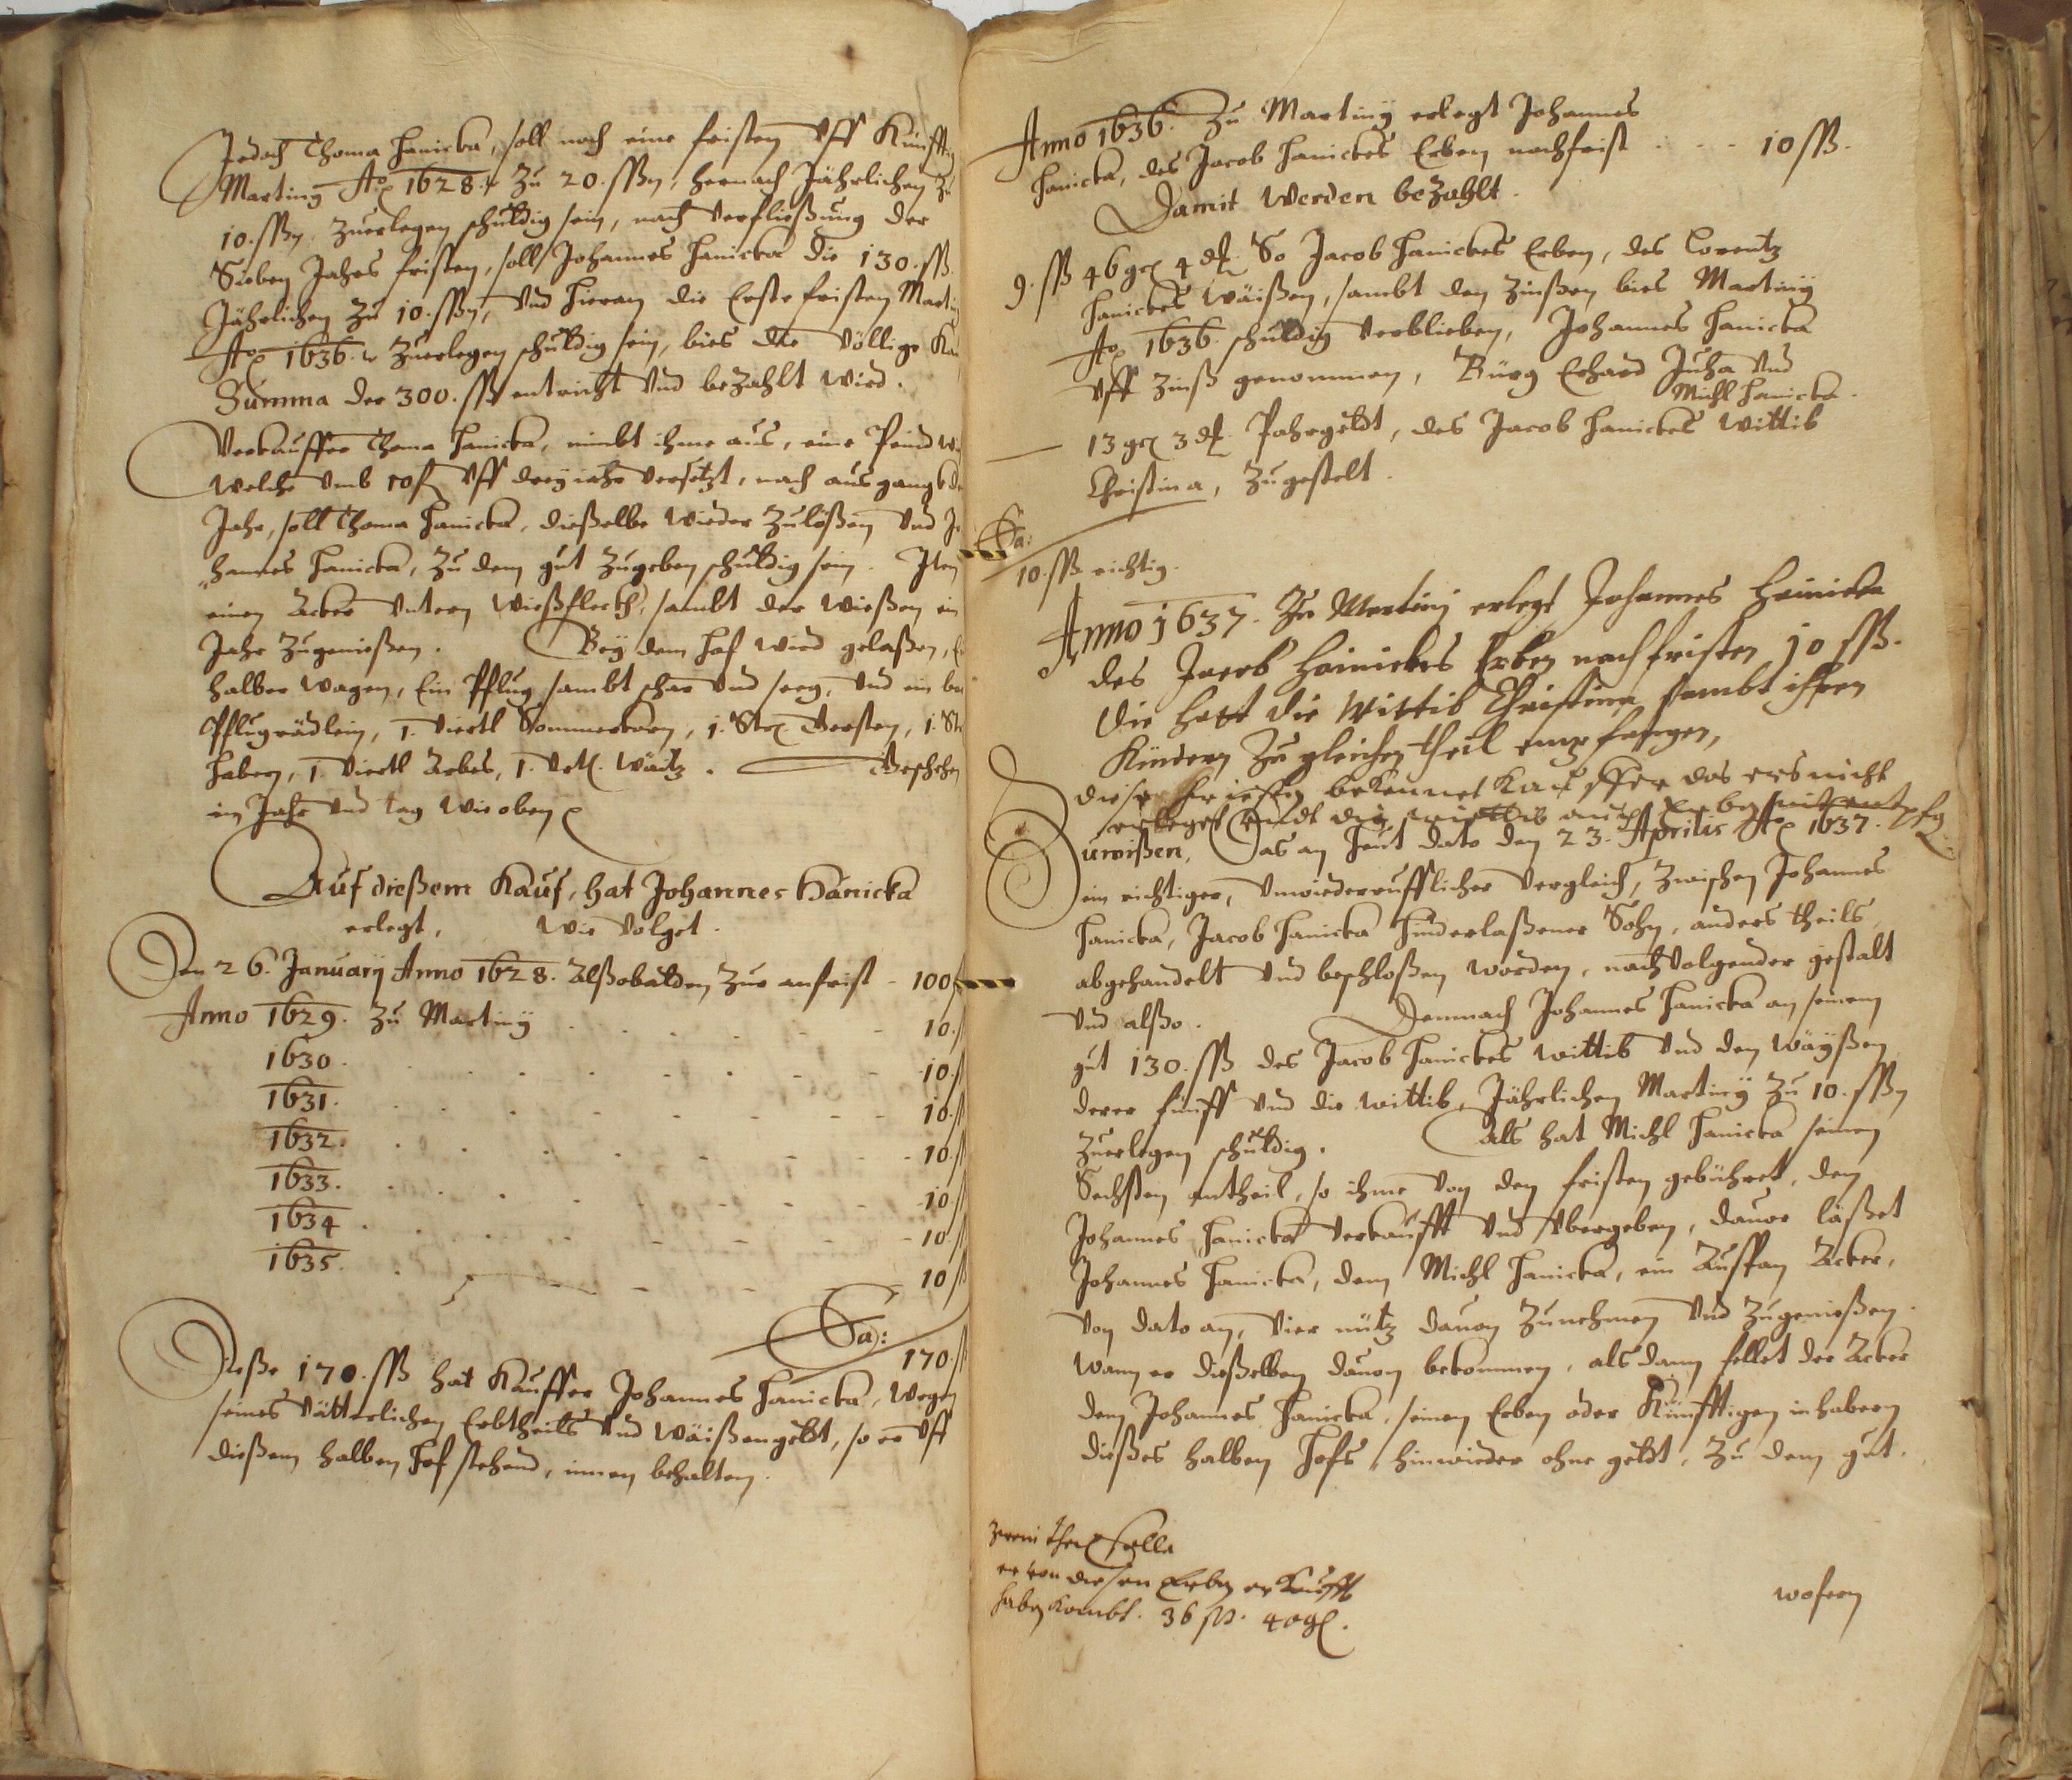 Jedoch Thoma Hanicka, soll noch eine fristen vff Künfftig
Martiny Ao 1628. zu 20. ßßn, hernach Jährlichen zu
10. ßßn, Zuerlegen schuldig sein, nach verfließung der
Sieben Jahrs fristen, soll Johannes Hanicka die 130. ßß
Jährlichen zu 10. ßßn, Vnd hieran die Erste fristen Marti
Ao 1636. Zuerlegen schuldig sein, bies die völlige Kau
Summa der 300. ßß entricht Vnd bezahlt wird.
Verkauffer Thoma Hanicka, nimbt ihme aus, eine
Welche vmb 10 f vff drey iahr versetzt, nach ausgang der
Jahr, soll Thoma Hanicka, dießelbe wieder Zulößen Vnd Jo
hannes Hanicka, Zu dem gut Zugeben schuldig sein. Item
einen Acker Vntern Wießfleckh, sambt der Wießen ein
Jahr Zugenießen. Bey dem Hof wird gelaßen, Ein
halber Wagen, Ein Pflug sambt schar Vnd seeg, Vnd ein
Pflugrädlein, 1. Viertl Sommerkorn, 1. Str Gersten, 1. Str
habern, 1. Viertl Arbes, 1. Vrtl. Waitz. Geschehen
im Jahr Vnd tag Wie oben
Auf dießem Kauf, hat Johannes Hanicka
erlegt, Wie Volget.
Den 26. January Anno 1628. Alßobalden Zur anfrist - 100 ß
Anno 1629. Zu Martiny 10. ß
1630. 10. ß
1631. 10. ß
1632. 10. ß
1633. 10 ß
1634. 10 ß
1635. 10 ß
Sa: 170. ß
Dieße 170. ßß hat Kauffer Johannes Hanicka, Wegen
seines Vätterlichen Erbtheils Vnd Waißengeldt, so er vff
dießem halben Hof stehend, innen behalten.
Anno 1636. Zu Martiny erlegt Johannes
Hanicka, des Jacob Hanickes Erben nachfrist . . . 10 ßß.
Damit Werden bezahlt.
9. ßß 46 gr 4 d. So Jacob Hanickes Erben, des Lorentz
Hanickes Waißen, sambt den Zinßen bies Martiny
Ao 1636. schuldig verblieben, Johannes Hanicka
vff Zinß genommen, Bürg Erhard Juha Vnd
Michl Hanicka.
— 13 gr 3 d. Pahrgeldt, des Jacob Hanickes Wittib
Christina, Zugestelt.
Sa:
10. ßß richtig.
Anno 1637. Zu Martini erlegt Johannes Hainicka
des Jacob Hainickes Erben nachfristen 10 ßß.
die hatt die Wittib Christina sambt ihren
Kindern Zu gleichen theil empfangen,
diese bekennet Kauffer das ers nicht
erleget undt die wittib auch
Zuwißen, Das an heut dato den 23. Aprilis Ao 1637.
ein richtiger, Vnwiederrufflicher Vergleich, Zwischen Johannes
Hanicka, Jacob Hanicka hinderlaßener Sohn, anders theils
abgehandelt Vnd beschloßen worden, nachVolgender gestalt
Vnd alßo. Demnach Johannes Hanicka an seinem
gut 130. ßß des Jacob Hanickes wittib Vnd den Wayßen
derer fünff Vnd die Wittib, Jährlichen Martiny Zu 10. ßßn
Zuerlegen schuldig. Als hat Michl Hanicka seinen
Sechsten antheil, so ihme Von den fristen gebühret, dem
Johannes Hanicka verkaufft Vnd vbergeben, dauor läßet
Johannes Hanicka, dem Michl Hanicka, ein Acker,
Von dato an, Vier nütz dauon Zunehmen Vnd Zugenießen.
Wann er dießelben dauon bekommen, als dann fellet der Acker
dem Johannes Hanicka, seinen Erben oder Künfftigen inhabern
dießes halben Hofs, hinwieder ohne geldt, Zu dem gut.
er von diesen Erben erkaufft
haben kombt. 36 ßß. 40 gl.
wofern